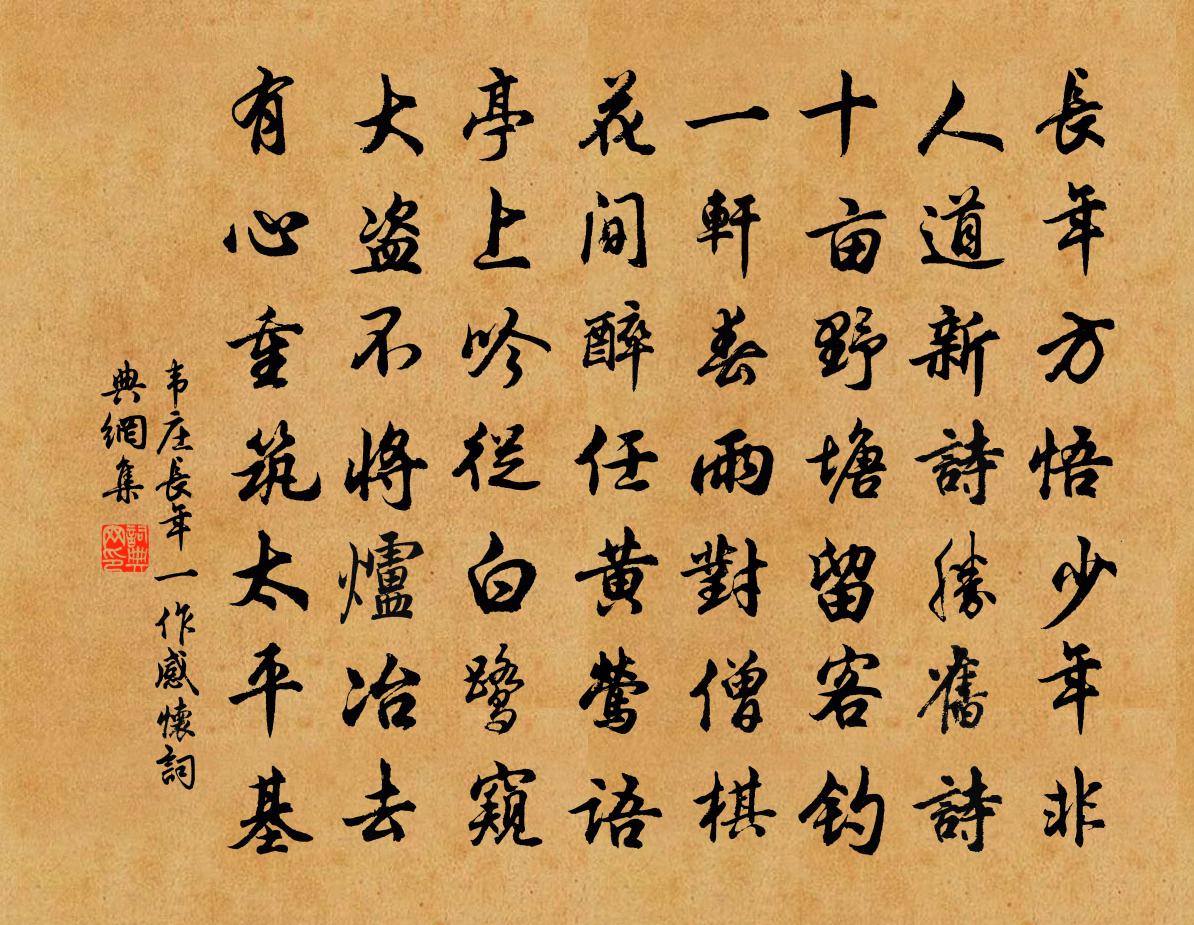 長年方悟少年非
人道新詩勝舊詩
十亩野塘留客钓
一軒春雨對僧棋
花間醉任黄莺語
亭上吟從白鹭窺
大盗不將爐冶去
有心重筑太平基
韦庄長年一作感懷詞
典網集
詞典
网印